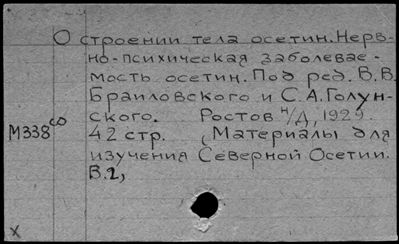 О строении тела осетин. Нерв-
но-психическая заболевае-
мость осетин. Под ред. В.В.
Браиловского и С.А. Голун-
ского. Ростов н/Д, 1929.
М338 со 42 стр. (Материалы для
изучения Северной Осетии.
В.2,
х